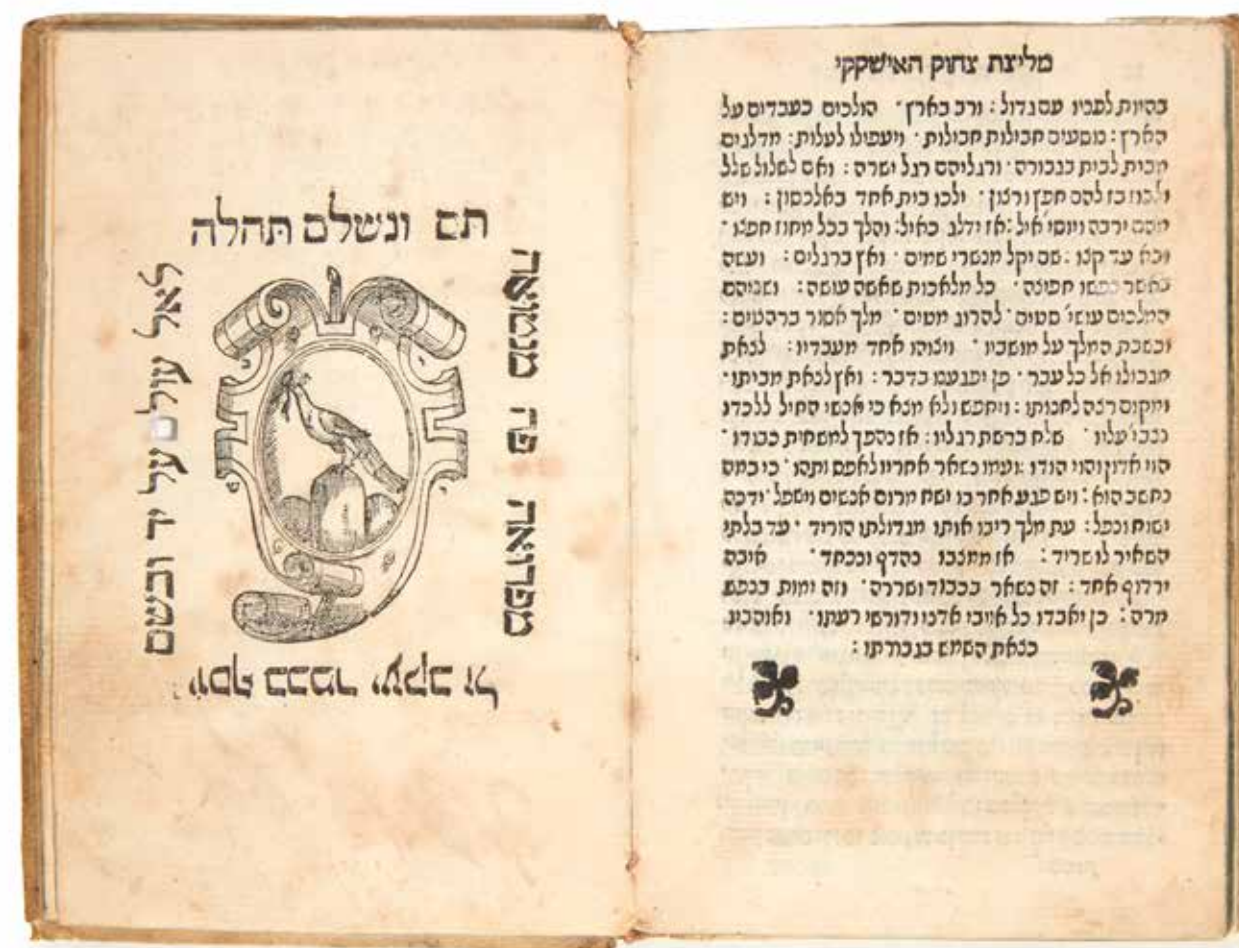 מליצת צחוק האישקקי
בהיות לפניו עם גדול: ורב בארץ· הולכים כעבדים על
הארץ: נוסעים חבילות חבילות· ויעפילו לעלות: מדלגים
מבית לבית בגבורה· ורגליהם רגל ישרה: ואם לשלול שלל
ולבוז בז להם חפץ ורצון· ילכו בית אחד באלכסון: ויש
מהם ירבה ויוסי׳ אול: אז ידלג כאיל: והלך בכל מחוז חפצו·
ובא עד קצו: שם יקל מנשרי שמים· ואץ ברגלים: ועשה
כאשר נפשו חפיצה· כל מלאכות שאשה עושה: ושניהם
המלכים עושי׳ סטים· להרוג מטים· מלך אסור ברהטים:
ובשבת המלך על מושביו· ויצוהו אחד מעבדיו: לצאת
מגבולו אל כל עבר· פן יפגעם בדבר: ואץ לצאת מביתו·
ומקום רצה לחנותו: ויחפש ולא מצא כי אנשי החיל ללכדו
נצבו׳ עליו· שלח ברשת רגליו: אז נהפך למשחית כבודו·
הוי אדון והוי הודו: ועמו נשאר אחריו לאפס ותהו· כי במה
נחשב הוא: ויש פגע אחר בו ישח מרום אנשים וישפל· ידכה
ישוח ונפל: עת מלך ריבו אותו מגדולתו הוריד· עד בלתי
השאיר לו שריד: אז מתגבו בהדף ונכחד· איבה
ירדוף אחד: זה נשאר בכבוד ושררה· וזה ימות בנפש
מרה: כן יאבדו כל אויבי אדני ודורשי רעתו· ואוהביו
כצאת השמש בגבורתו:
תם ונשלם תהלה
לאל עולם על יד ובשם
יוסף בכמר יעקב זל
מפדואה פה מנטואה